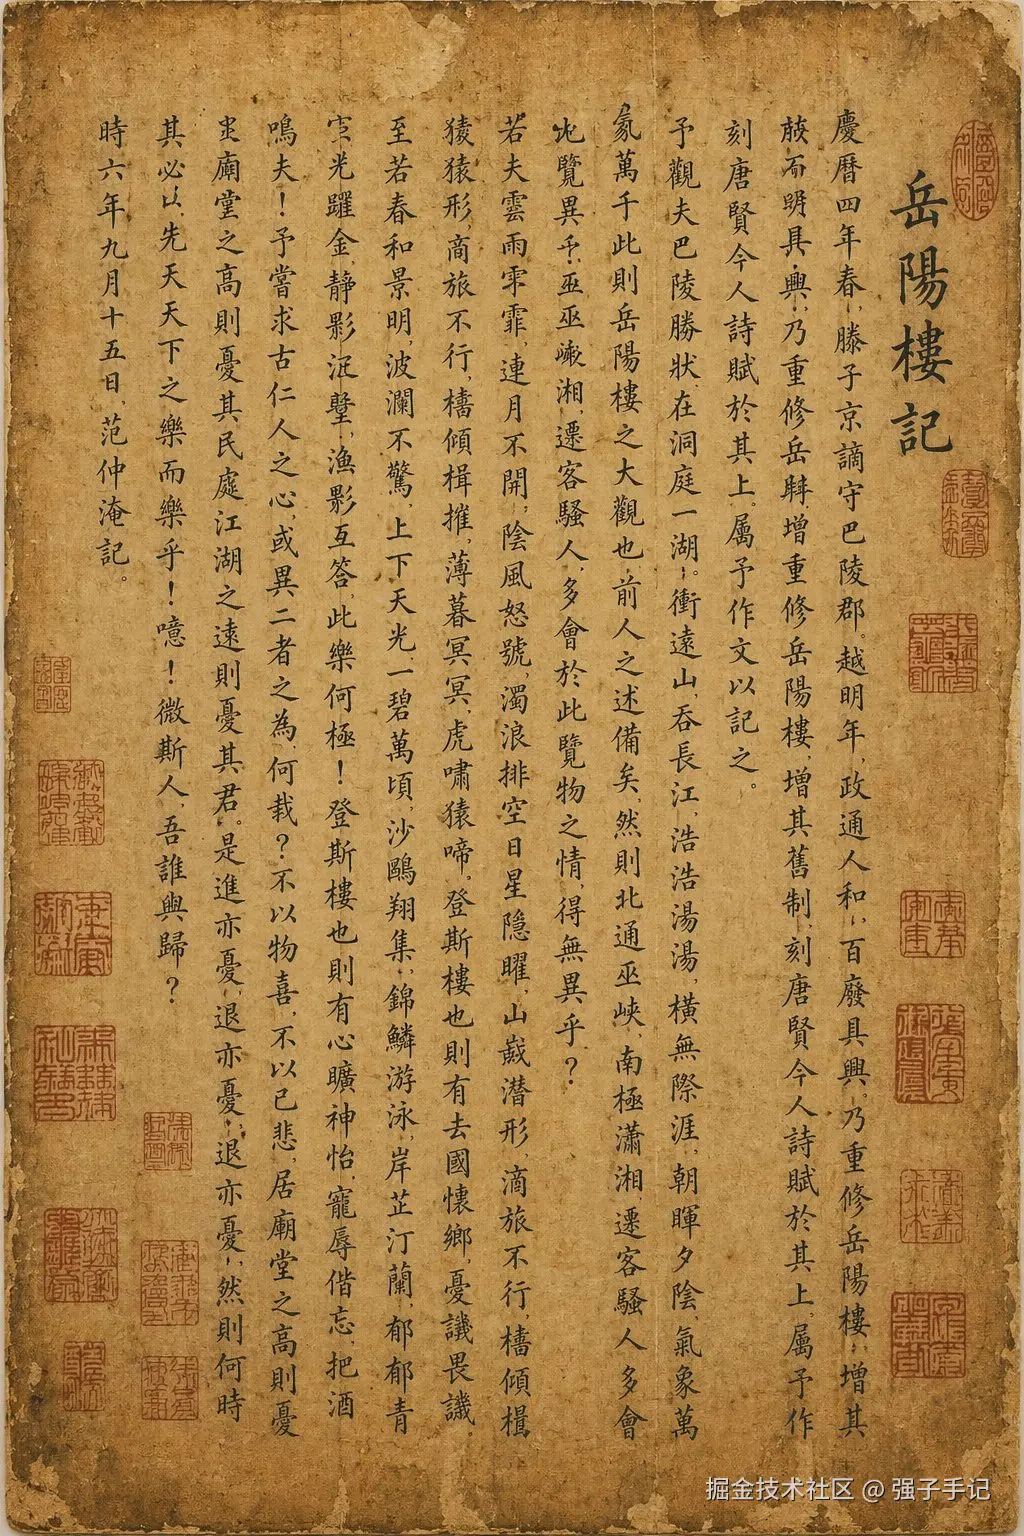 岳陽樓記
慶曆四年春,滕子京謫守巴陵郡。越明年,政通人和,百廢具興。乃重修岳陽樓,增其
明具興,乃重修岳增重修岳陽樓,增其舊制,刻唐賢今人詩賦於其上。屬予作
刻唐賢今人詩賦於其上。屬予作文以記之。
予觀夫巴陵勝狀,在洞庭一湖。衝遠山,吞長江,浩浩湯湯,橫無際涯,朝暉夕陰,氣象萬
萬千此則岳陽樓之大觀也,前人之述備矣,然則北通巫峡,南極瀟湘,遷客騷人多會
覽異巫湘,遷客騷人,多會於此覽物之情,得無異乎?
若夫雲雨霏,連月不開,陰風怒號,濁浪排空日星隠曜,山潛形,滴旅不行,檣傾
猿形,商旅不行,檣傾楫摧,薄暮冥冥,虎嘯猿啼,登斯樓也則有去國懷鄉,憂譏畏譏,
至若春和景明,波瀾不驚,上下天光,一碧萬頃,沙鷗翔集,錦鱗游泳,岸芷汀蘭,郁郁青
光躍金,靜影,漁影互答,此樂何極!登斯樓也則有心曠神怡,寵辱偕忘,把酒
鳴夫!予嘗求古仁人之心,或異二者之為,何?不以物喜,不以己悲,居廟堂之高則憂
廟堂之高則憂其民處江湖之遠則憂其君。是進亦憂,退亦憂,退亦憂,然則何時
其必先天天下之樂而樂乎!噫!微斯人,吾誰與歸?
時六年九月十五日,范仲淹記。
掘金技术社区 @ 强子手记